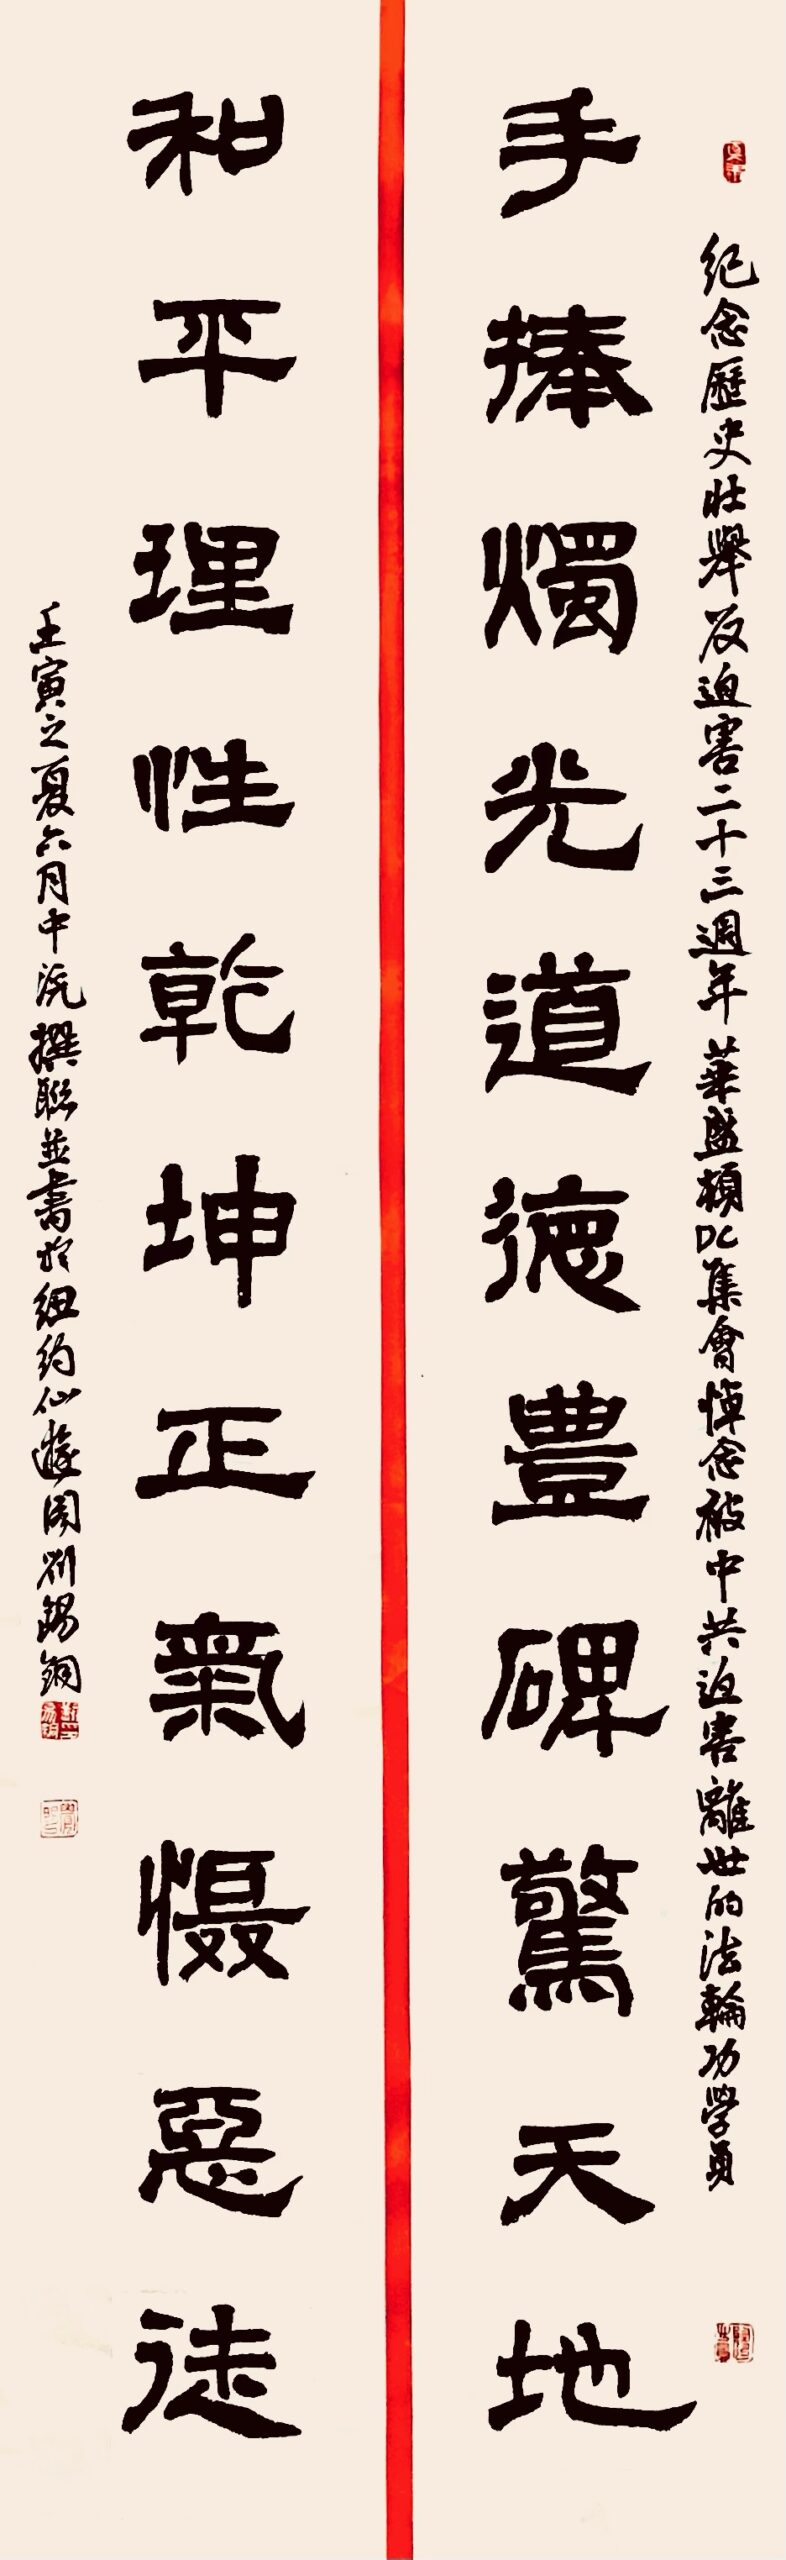 紀念歷史壯舉反迫害二十三週年華盛頓DC集會悼念被中共迫害離世的法輪功學員
手捧燭光道德豐碑驚天地
和平理性乾坤正氣慑惡徒
壬寅之夏六月中浣撰聯並書於紐約仙遊園劉錫銅